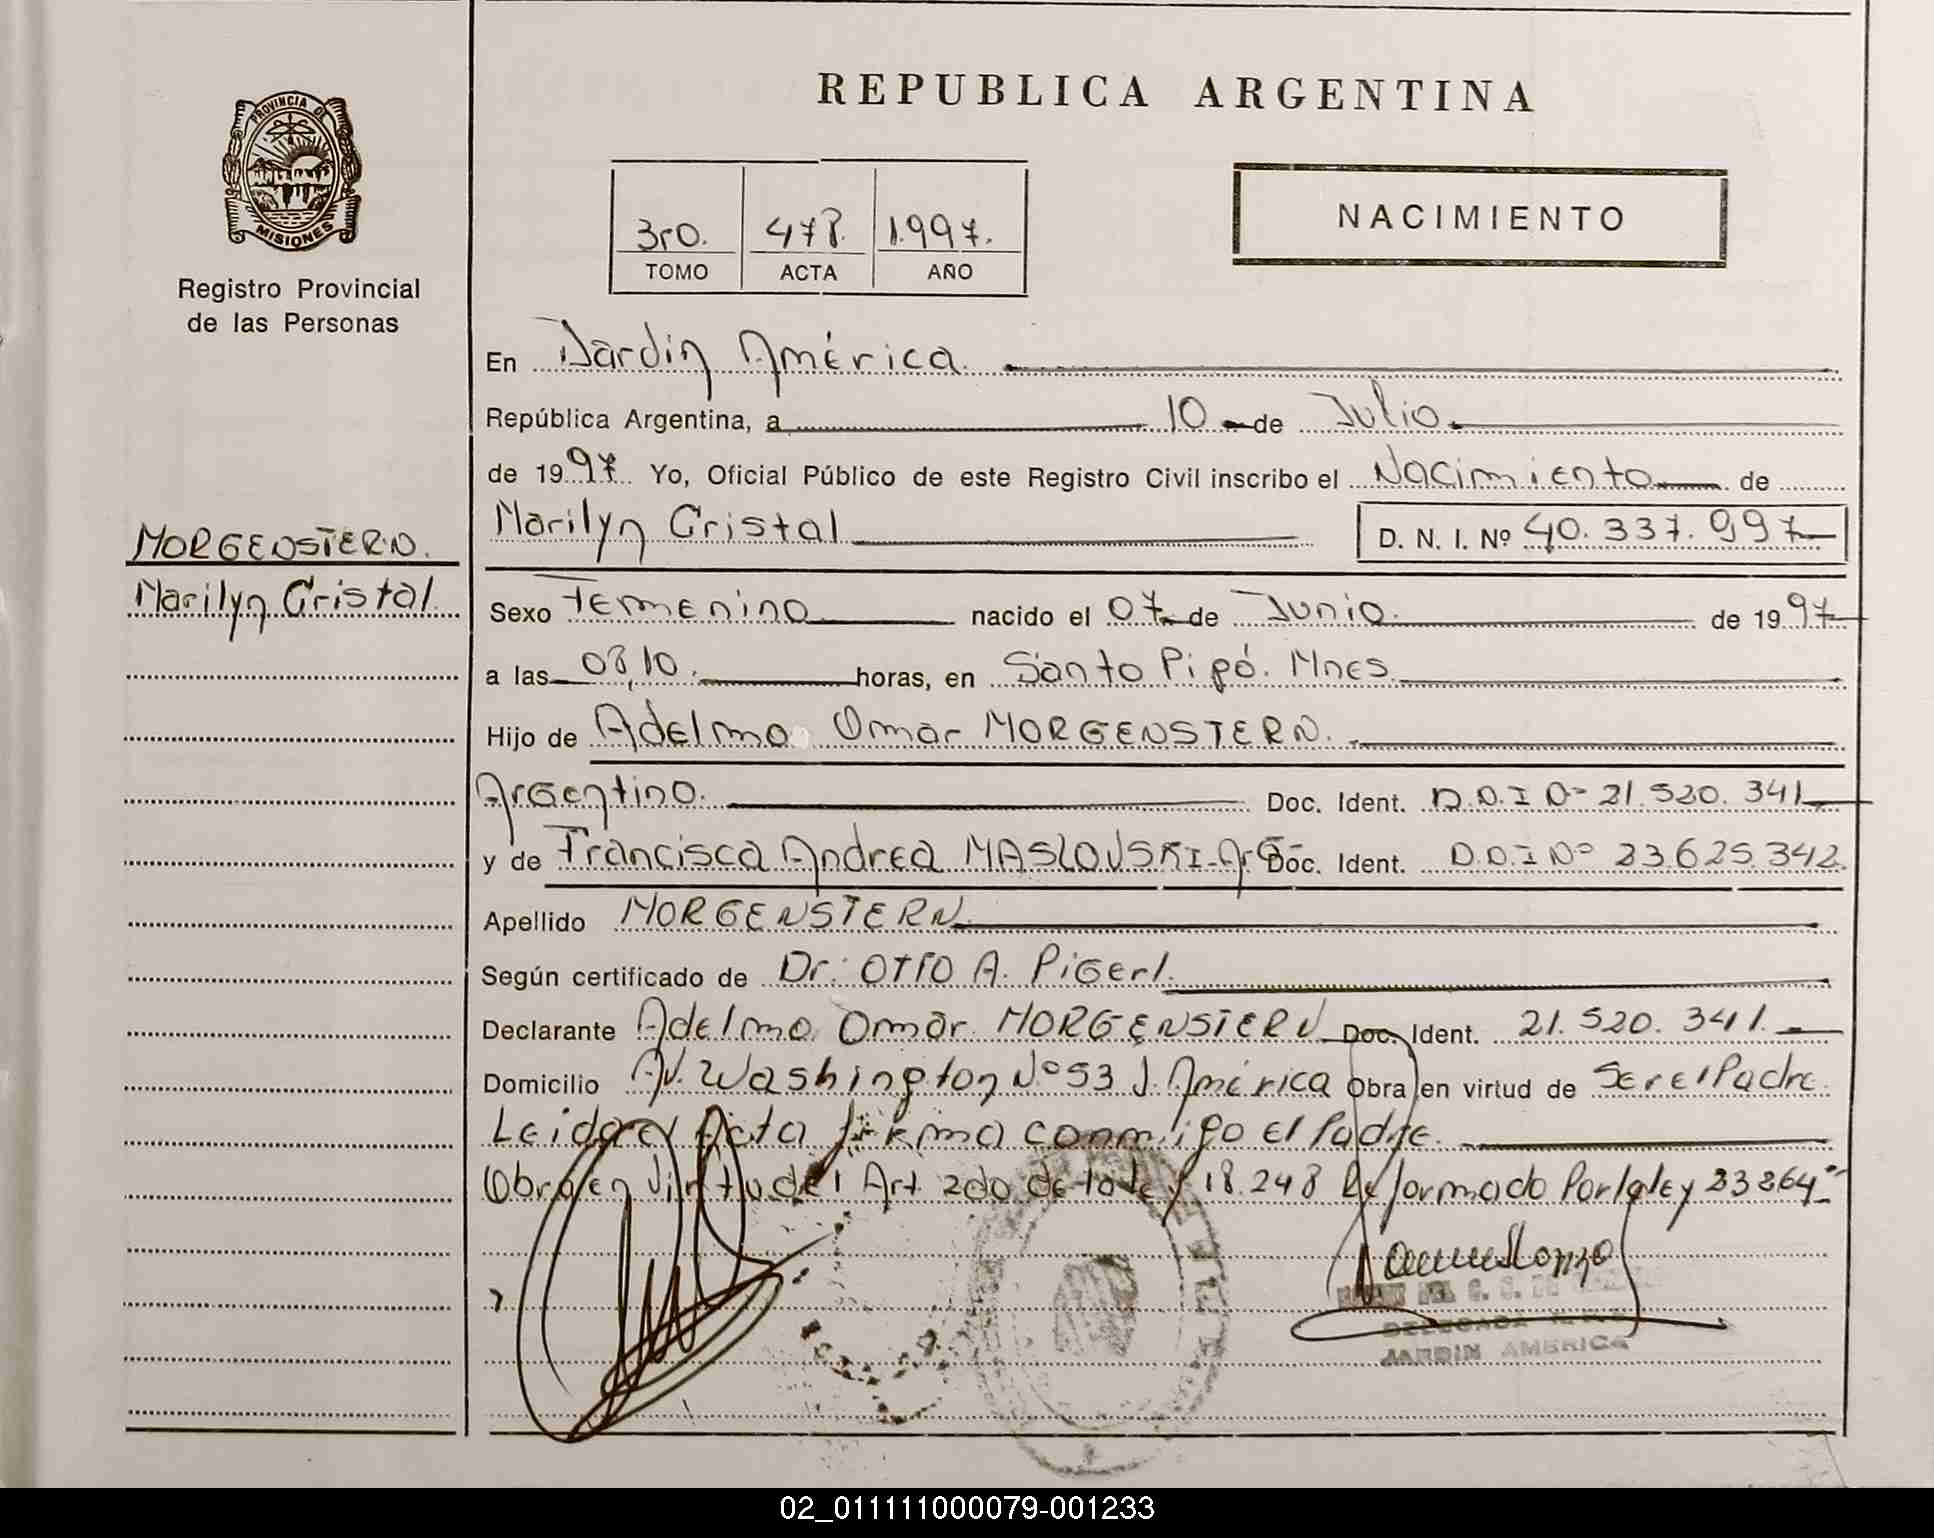 REPUBLICA ARGENTINA
PROVINCIA DE
MISIONES
Registro Provincial
de las Personas
3ro. 478. 1.997.
TOMO ACTA AÑO
NACIMIENTO
En Jardin América
República Argentina, a 10 de Julio
de 1997 Yo, Oficial Público de este Registro Civil inscribo el Nacimiento de
Marilyn Cristal D. N. I. Nº 40.337.997
MORGENSTERN.
Marilyn Cristal
Sexo Femenino nacido el 07 de Junio. de 1997
a las 08,10. horas, en Santo Pipó. Mnes.
Hijo de Adelmo Omar MORGENSTERN.
Argentino. Doc. Ident. D.N.I Nº 21.520.341
y de Francisca Andrea MASLOVSKI-Arg- Doc. Ident. D.N.I Nº 23.625.342.
Apellido MORGENSTERN
Según certificado de Dr: OTTO A. Pigerl.
Declarante Adelmo Omar MORGENSTERN Doc. Ident. 21.520.341.
Domicilio AV. Washington N.º 53 J. América Obra en virtud de Ser el Padre.
Leida el Acta firma conmigo el Padre.
Obra en Virtud del Art 2do de la ley 18.248 Reformado Por la ley 23264
DELEGADA
JARDIN AMERICA
02_011111000079-001233